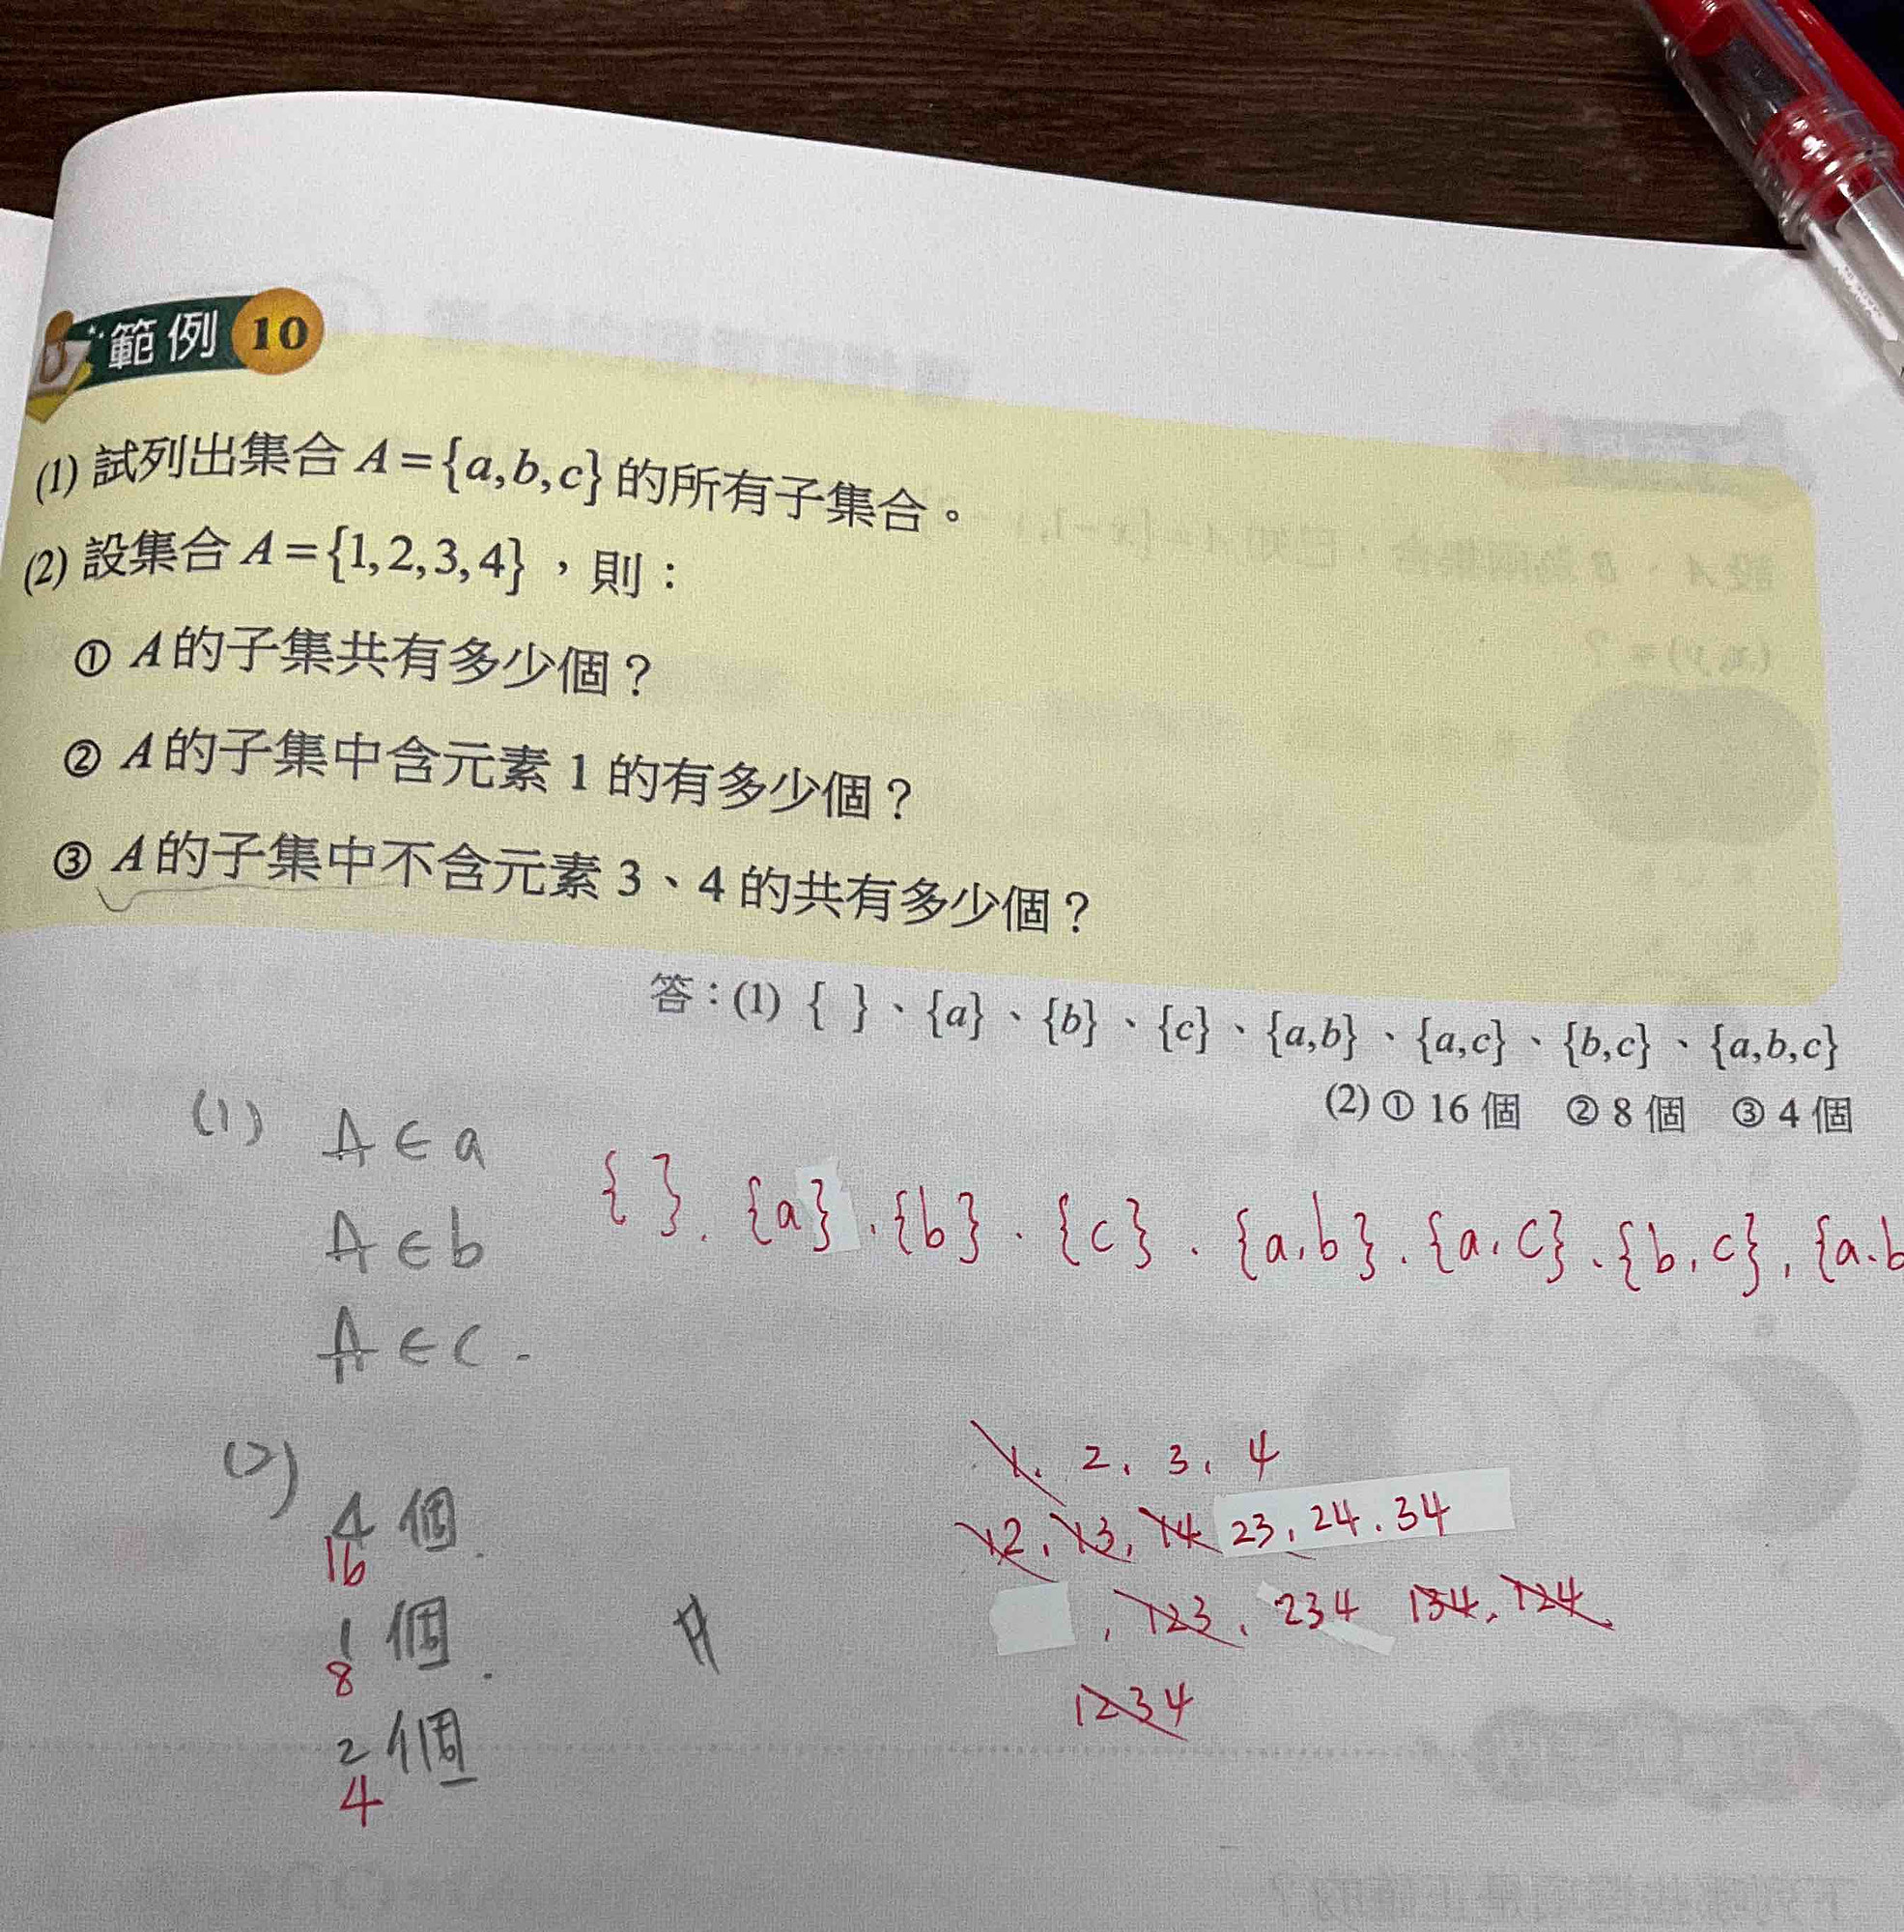 範例 10
(1) 試列出集合 A={a,b,c} 的所有子集合。
(2) 設集合 A={1,2,3,4}，則：
① A的子集共有多少個？
② A的子集中含元素 1 的有多少個？
③ A的子集中不含元素 3、4 的共有多少個？
答：(1) { }、{a}、{b}、{c}、{a,b}、{a,c}、{b,c}、{a,b,c}
(2) ① 16 個 ② 8 個 ③ 4 個
(1) A∈a
A∈b
A∈c.
{ }.{a}.{b}.{c}.{a,b}.{a,c}.{b,c},{a.b
(2)
4個.
16
1個.
8
2個
4
1. 2, 3, 4
12, 13, 14 23, 24. 34
, 123, 234 134, 124
1234